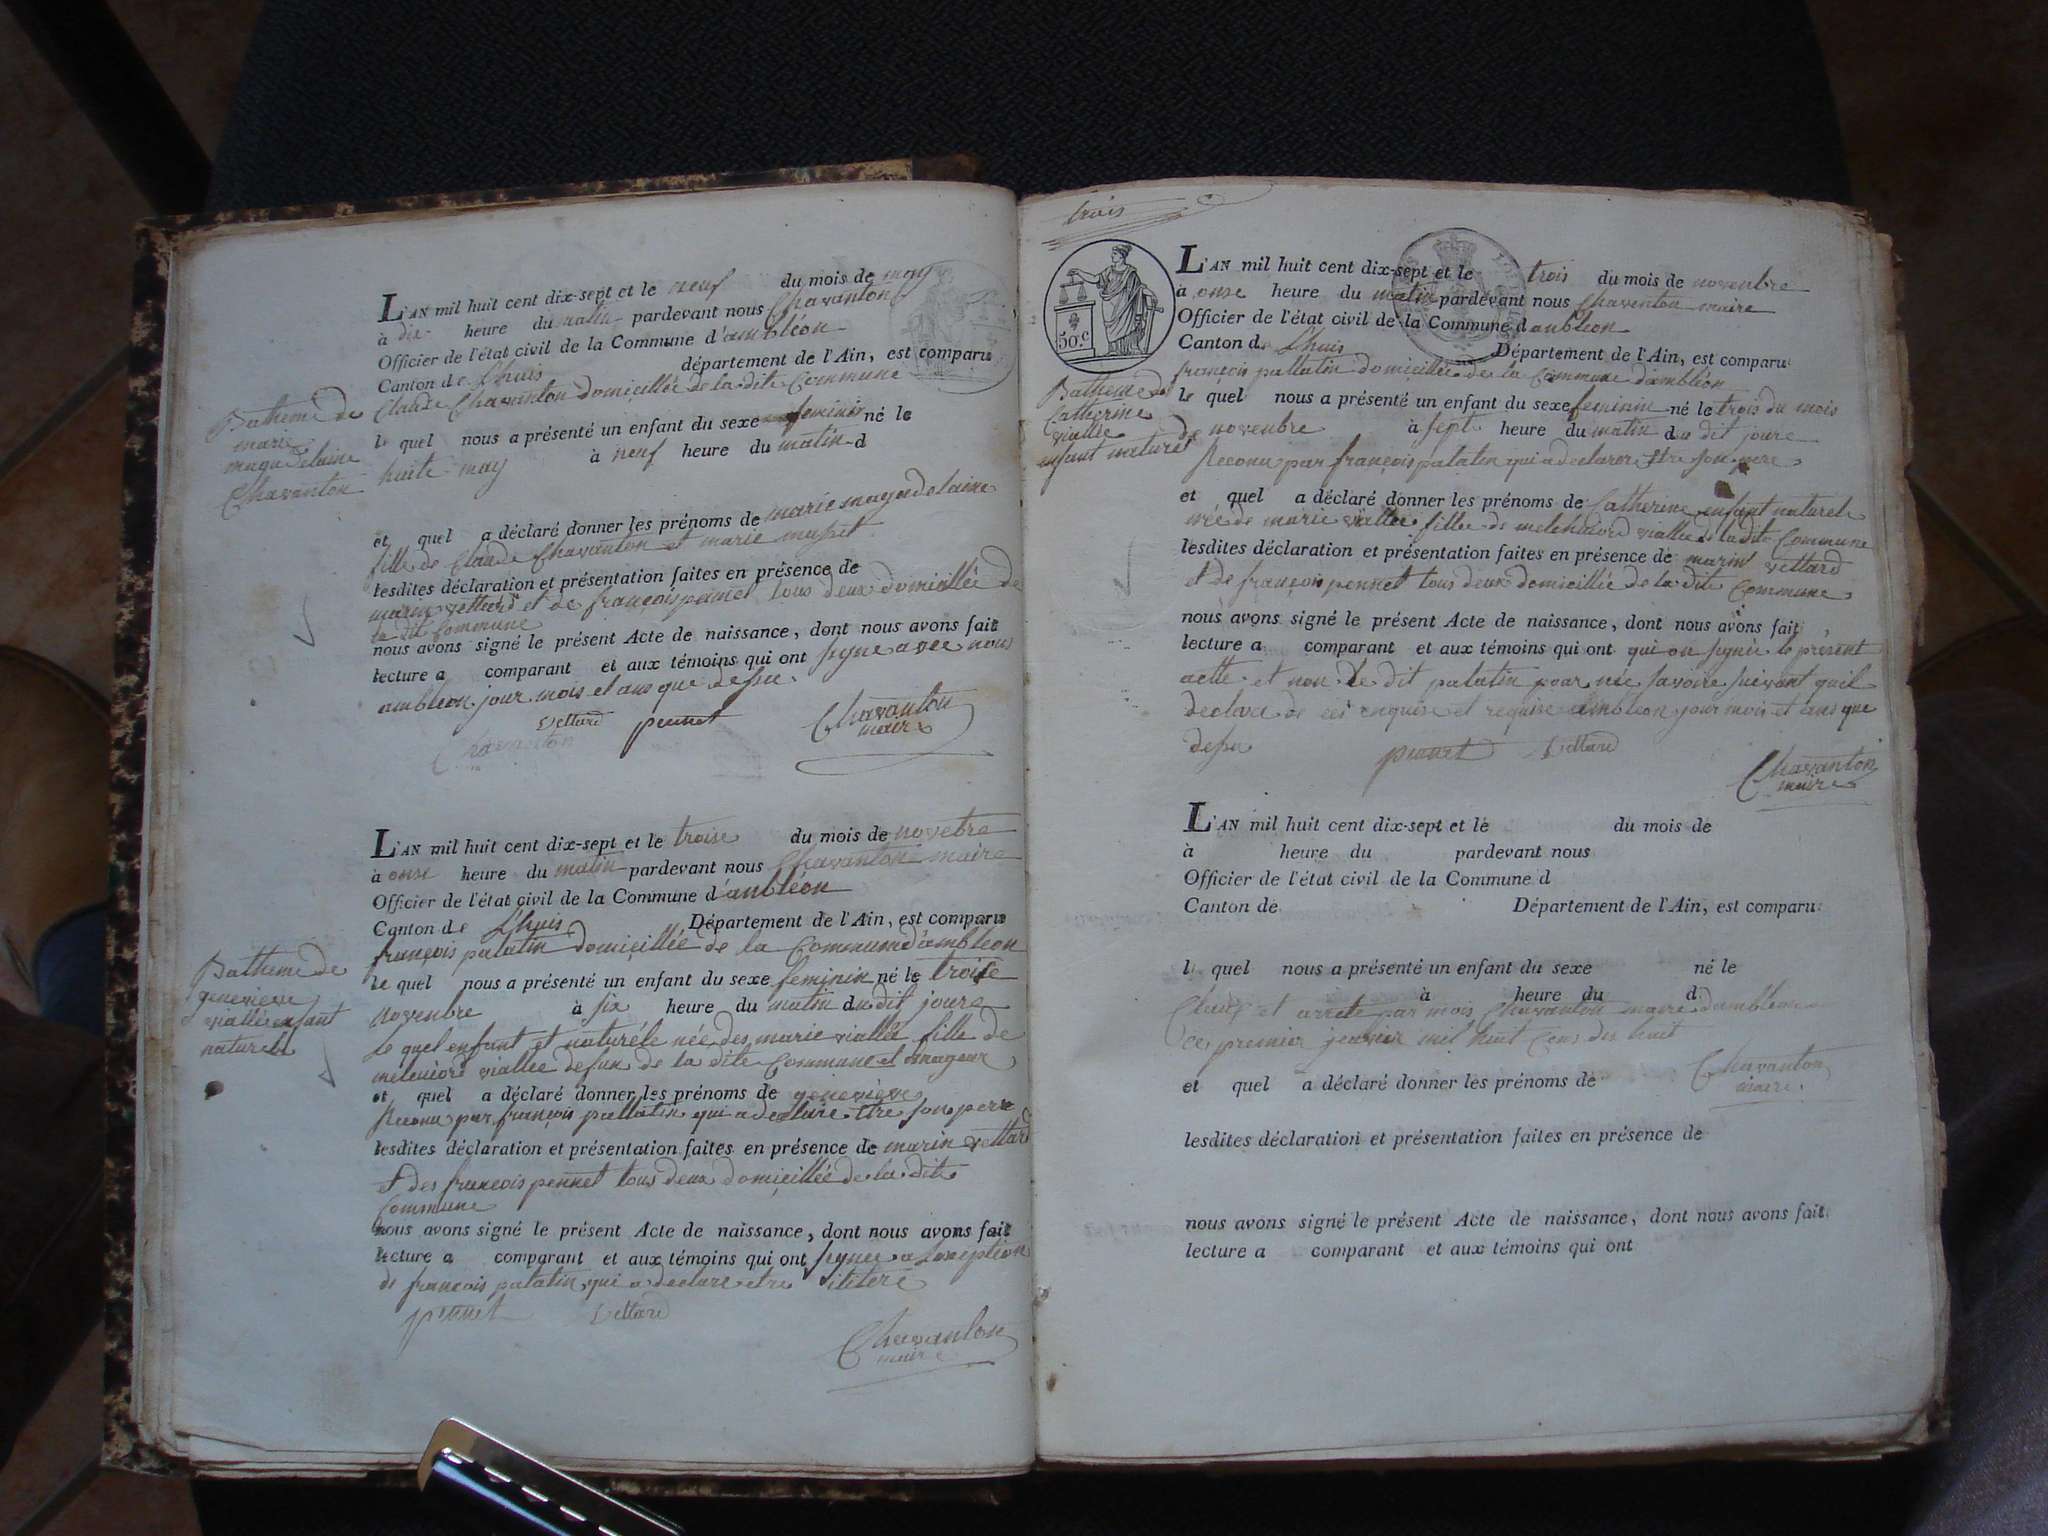 L'AN mil huit cent dix-sept et le neuf du mois de may
à dix heure du matin pardevant nous Chavanton
Officier de l'état civil de la Commune d'ambléon
Canton de Lhuis département de l'Ain, est comparu
Claude Chavanton domicillée de la dite Commune
le quel nous a présenté un enfant du sexe feminin né le
huite may à neuf heure du matin d
Batheme de
marie
magadelaine
Chavanton
et quel a déclaré donner les prénoms de marie magadelaine
fille de Claude Chavanton et marie
lesdites déclaration et présentation faites en présence de
marin vettard et de françois pennet tous deux domicillée de
la dit Commune
nous avons signé le présent Acte de naissance, dont nous avons fait
lecture a comparant et aux témoins qui ont signe avec nous
ambléon jour mois et ans que desu.
Vettard pennet Chavanton
Chavanton maire
L'AN mil huit cent dix-sept et le troise du mois de novebre
à onse heure du matin pardevant nous Chavanton maire
Officier de l'état civil de la Commune d'anbléon
Canton de Lhuis Département de l'Ain, est comparu
françois palatin domicillée de la Commune d'ambleon
le quel nous a présenté un enfant du sexe feminin né le troise
novenbre à six heure du matin du dit jours
Batheme de
genevieve
viallé enfant
naturele
le quel enfant et naturéle née des marie viallée fille de
melchiord viallée defun de la dite Commune et
et quel a déclaré donner les prénoms de genevieve
Reconu par françois pallatin qui a declaire etre son pere
lesdites déclaration et présentation faites en présence de marin vettard
et des francois pennet tous deux domicillée de la dite
Commune
nous avons signé le présent Acte de naissance, dont nous avons fait
lecture a comparant et aux témoins qui ont signee a lexseption
de françois palatin qui a declare etre ilitere
pennet Vettard
Chavanton
maire
trois
50.c
L'AN mil huit cent dix-sept et le trois du mois de novenbre
à onse heure du matin pardevant nous Chavanton maire
Officier de l'état civil de la Commune d anbleon
Canton de Lhuis Département de l'Ain, est comparu
françois pallatin domicillée de la Commune d'ambléon
le quel nous a présenté un enfant du sexe feminin né le trois du mois
de novenbre à sept heure du matin du dit jours
Batheme de
Catherine
viallée
enfant naturel
Reconu par françois palatin qui a declarer etre son pere
et quel a déclaré donner les prénoms de Catherine enfant naturel
née de marie viallée fille de melchiord viallée de la dite Commune
lesdites déclaration et présentation faites en présence de marin vettard
et de françois pennet tous deux domicillée de la dite Commune
nous avons signé le présent Acte de naissance, dont nous avons fait
lecture a comparant et aux témoins qui ont qui on signée le présent
acte et non le dit palatin pour ne savoire suivant quil
declaré de ces enquise et requise ambleon jour mois et ans que
desu pennet Vettard
Chavanton
maire
L'AN mil huit cent dix-sept et le du mois de
à heure du pardevant nous
Officier de l'état civil de la Commune d
Canton de Département de l'Ain, est comparu
l quel nous a présenté un enfant du sexe né le
à heure du d
Claux et arrete par mois Chavanton maire d'ambleon
ce premier jenvier mil huit cens dix huit
Chavanton
maire
et quel a déclaré donner les prénoms de
lesdites déclaration et présentation faites en présence de
nous avons signé le présent Acte de naissance, dont nous avons fait
lecture a comparant et aux témoins qui ont